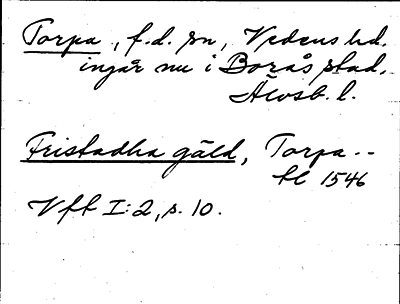 Torpa, f.d. sn, Vedens hd.
ingår nu i Borås stad,
Älvsb. l.
Fristadha gäld, Torpa --
hl 1546
Vfl I:2, s. 10.